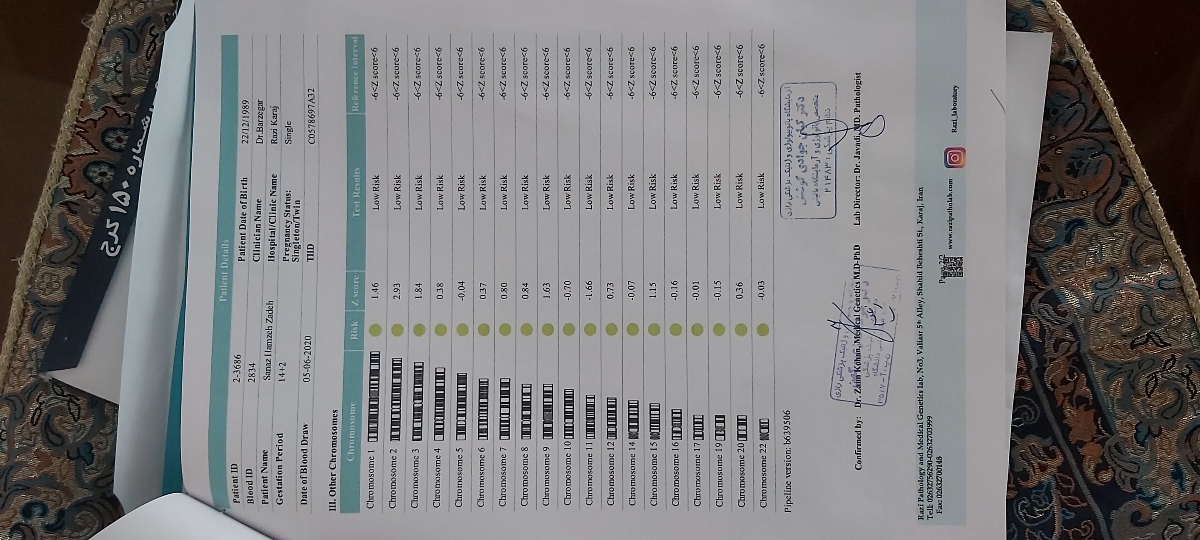 شماره ۱۵۰ کرج
Patient Details
Patient ID 2-3686 Patient Date of Birth 22/12/1989
Blood ID 2834 Clinician Name Dr.Barzegar
Patient Name Sanaz Hamzeh Zadeh Hospital/Clinic Name Razi Karaj
Gestation Period 14+2 Pregnancy Status: Singleton/Twin Single
Date of Blood Draw 05-06-2020 TIID C0578697A32
III. Other Chromosomes
Chromosome Risk Z score Test Results Reference interval
Chromosome 1 1.46 Low Risk -6<Z score<6
Chromosome 2 2.93 Low Risk -6<Z score<6
Chromosome 3 1.84 Low Risk -6<Z score<6
Chromosome 4 0.38 Low Risk -6<Z score<6
Chromosome 5 -0.04 Low Risk -6<Z score<6
Chromosome 6 0.37 Low Risk -6<Z score<6
Chromosome 7 0.80 Low Risk -6<Z score<6
Chromosome 8 0.84 Low Risk -6<Z score<6
Chromosome 9 1.63 Low Risk -6<Z score<6
Chromosome 10 -0.70 Low Risk -6<Z score<6
Chromosome 11 -1.66 Low Risk -6<Z score<6
Chromosome 12 0.73 Low Risk -6<Z score<6
Chromosome 14 -0.07 Low Risk -6<Z score<6
Chromosome 15 1.15 Low Risk -6<Z score<6
Chromosome 16 -0.16 Low Risk -6<Z score<6
Chromosome 17 -0.01 Low Risk -6<Z score<6
Chromosome 19 -0.15 Low Risk -6<Z score<6
Chromosome 20 0.36 Low Risk -6<Z score<6
Chromosome 22 -0.03 Low Risk -6<Z score<6
Pipeline version: b639506
Confirmed by: Dr. Zaim Kohan, Medical Genetics M.D-PhD Lab Director: Dr. Javadi, MD. Pathologist
Razi Pathology and Medical Genetics lab, No3, Valiasr 5th Alley, Shahid Beheshti St., Karaj, Iran
Tell: 02632756290-02632703999
Fax: 02632700148
www.razipatholab.com Razi_laboratory